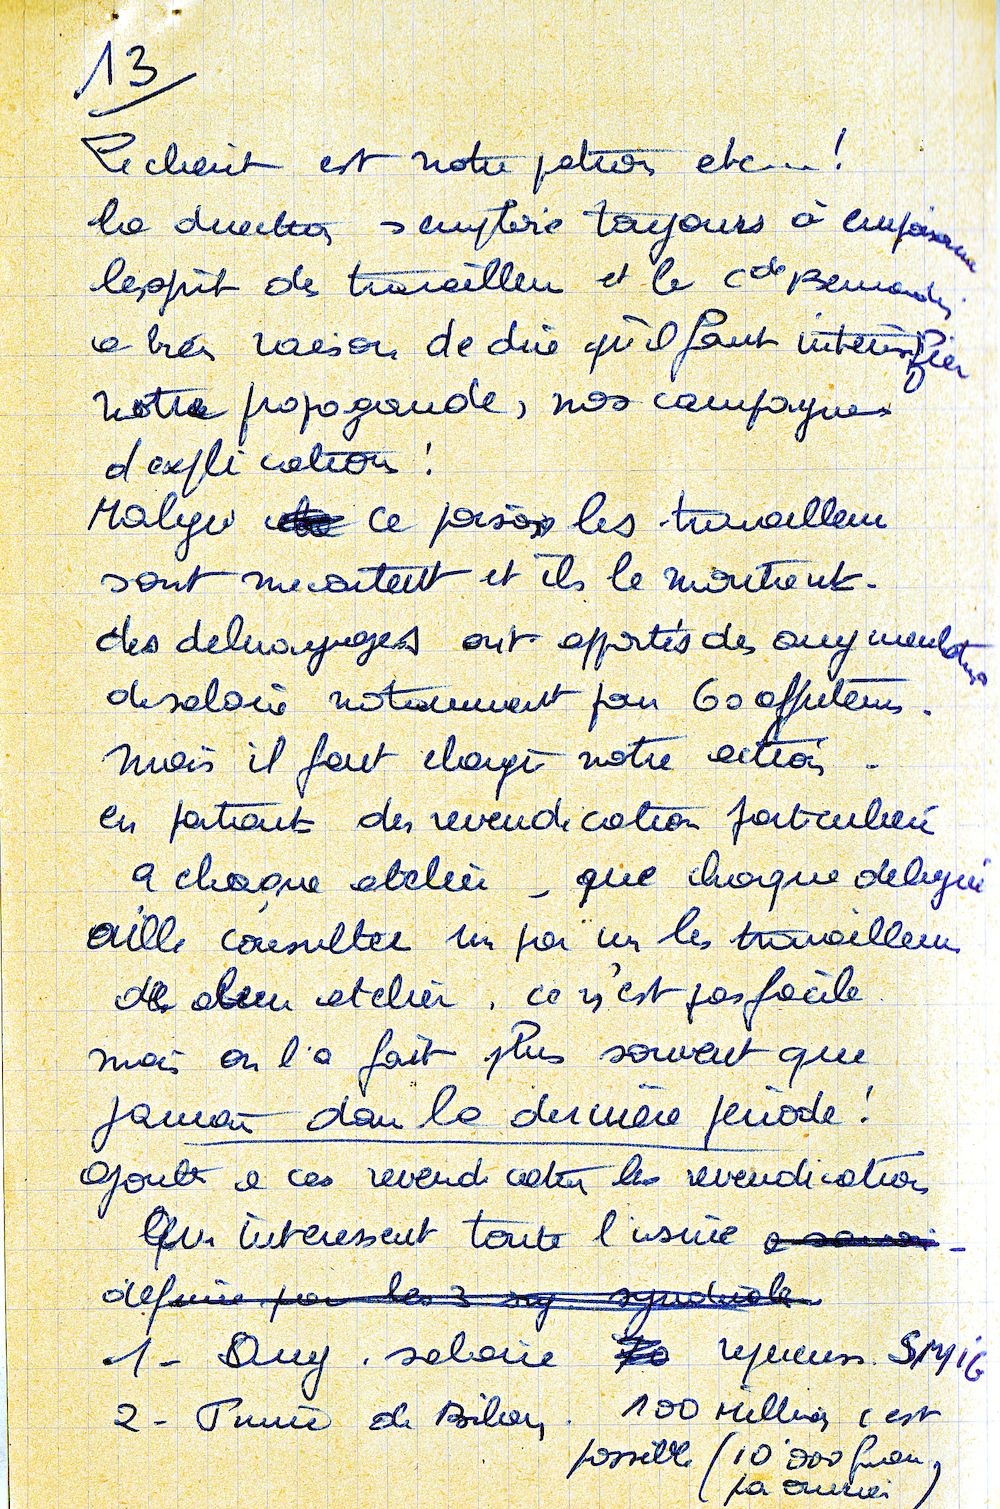 13
est notre patron etc... !
La direction toujours à
l'esprit des travailleurs et le Cde Bernardi
a bien raison de dire qu'il faut intensifier
notre propagande, nos campagnes
d'explication !
Malgré ce poison les travailleurs
sont mecontent et ils le montrent -
des debrayages ont apportés des augmentation
de salaire notamment pour 60 affuteurs -
Mais il faut changer notre action -
en partant des revendication particuliere
a chaque atelier - que chaque delegué
aille consulter un par un les travailleurs
de leur atelier. ce n'est pas facile
mais on l'a fait plus souvent que
jamais dans la dernière période !
ajouter a ces revendication les revendications
qui interessent toute l'usine -
definie par les 3 org. syndicale
1 - Aug. salaire SMIG
2 - Prime de Bilan. 100 Million c'est
possible (10 000 francs
par ouvrier)